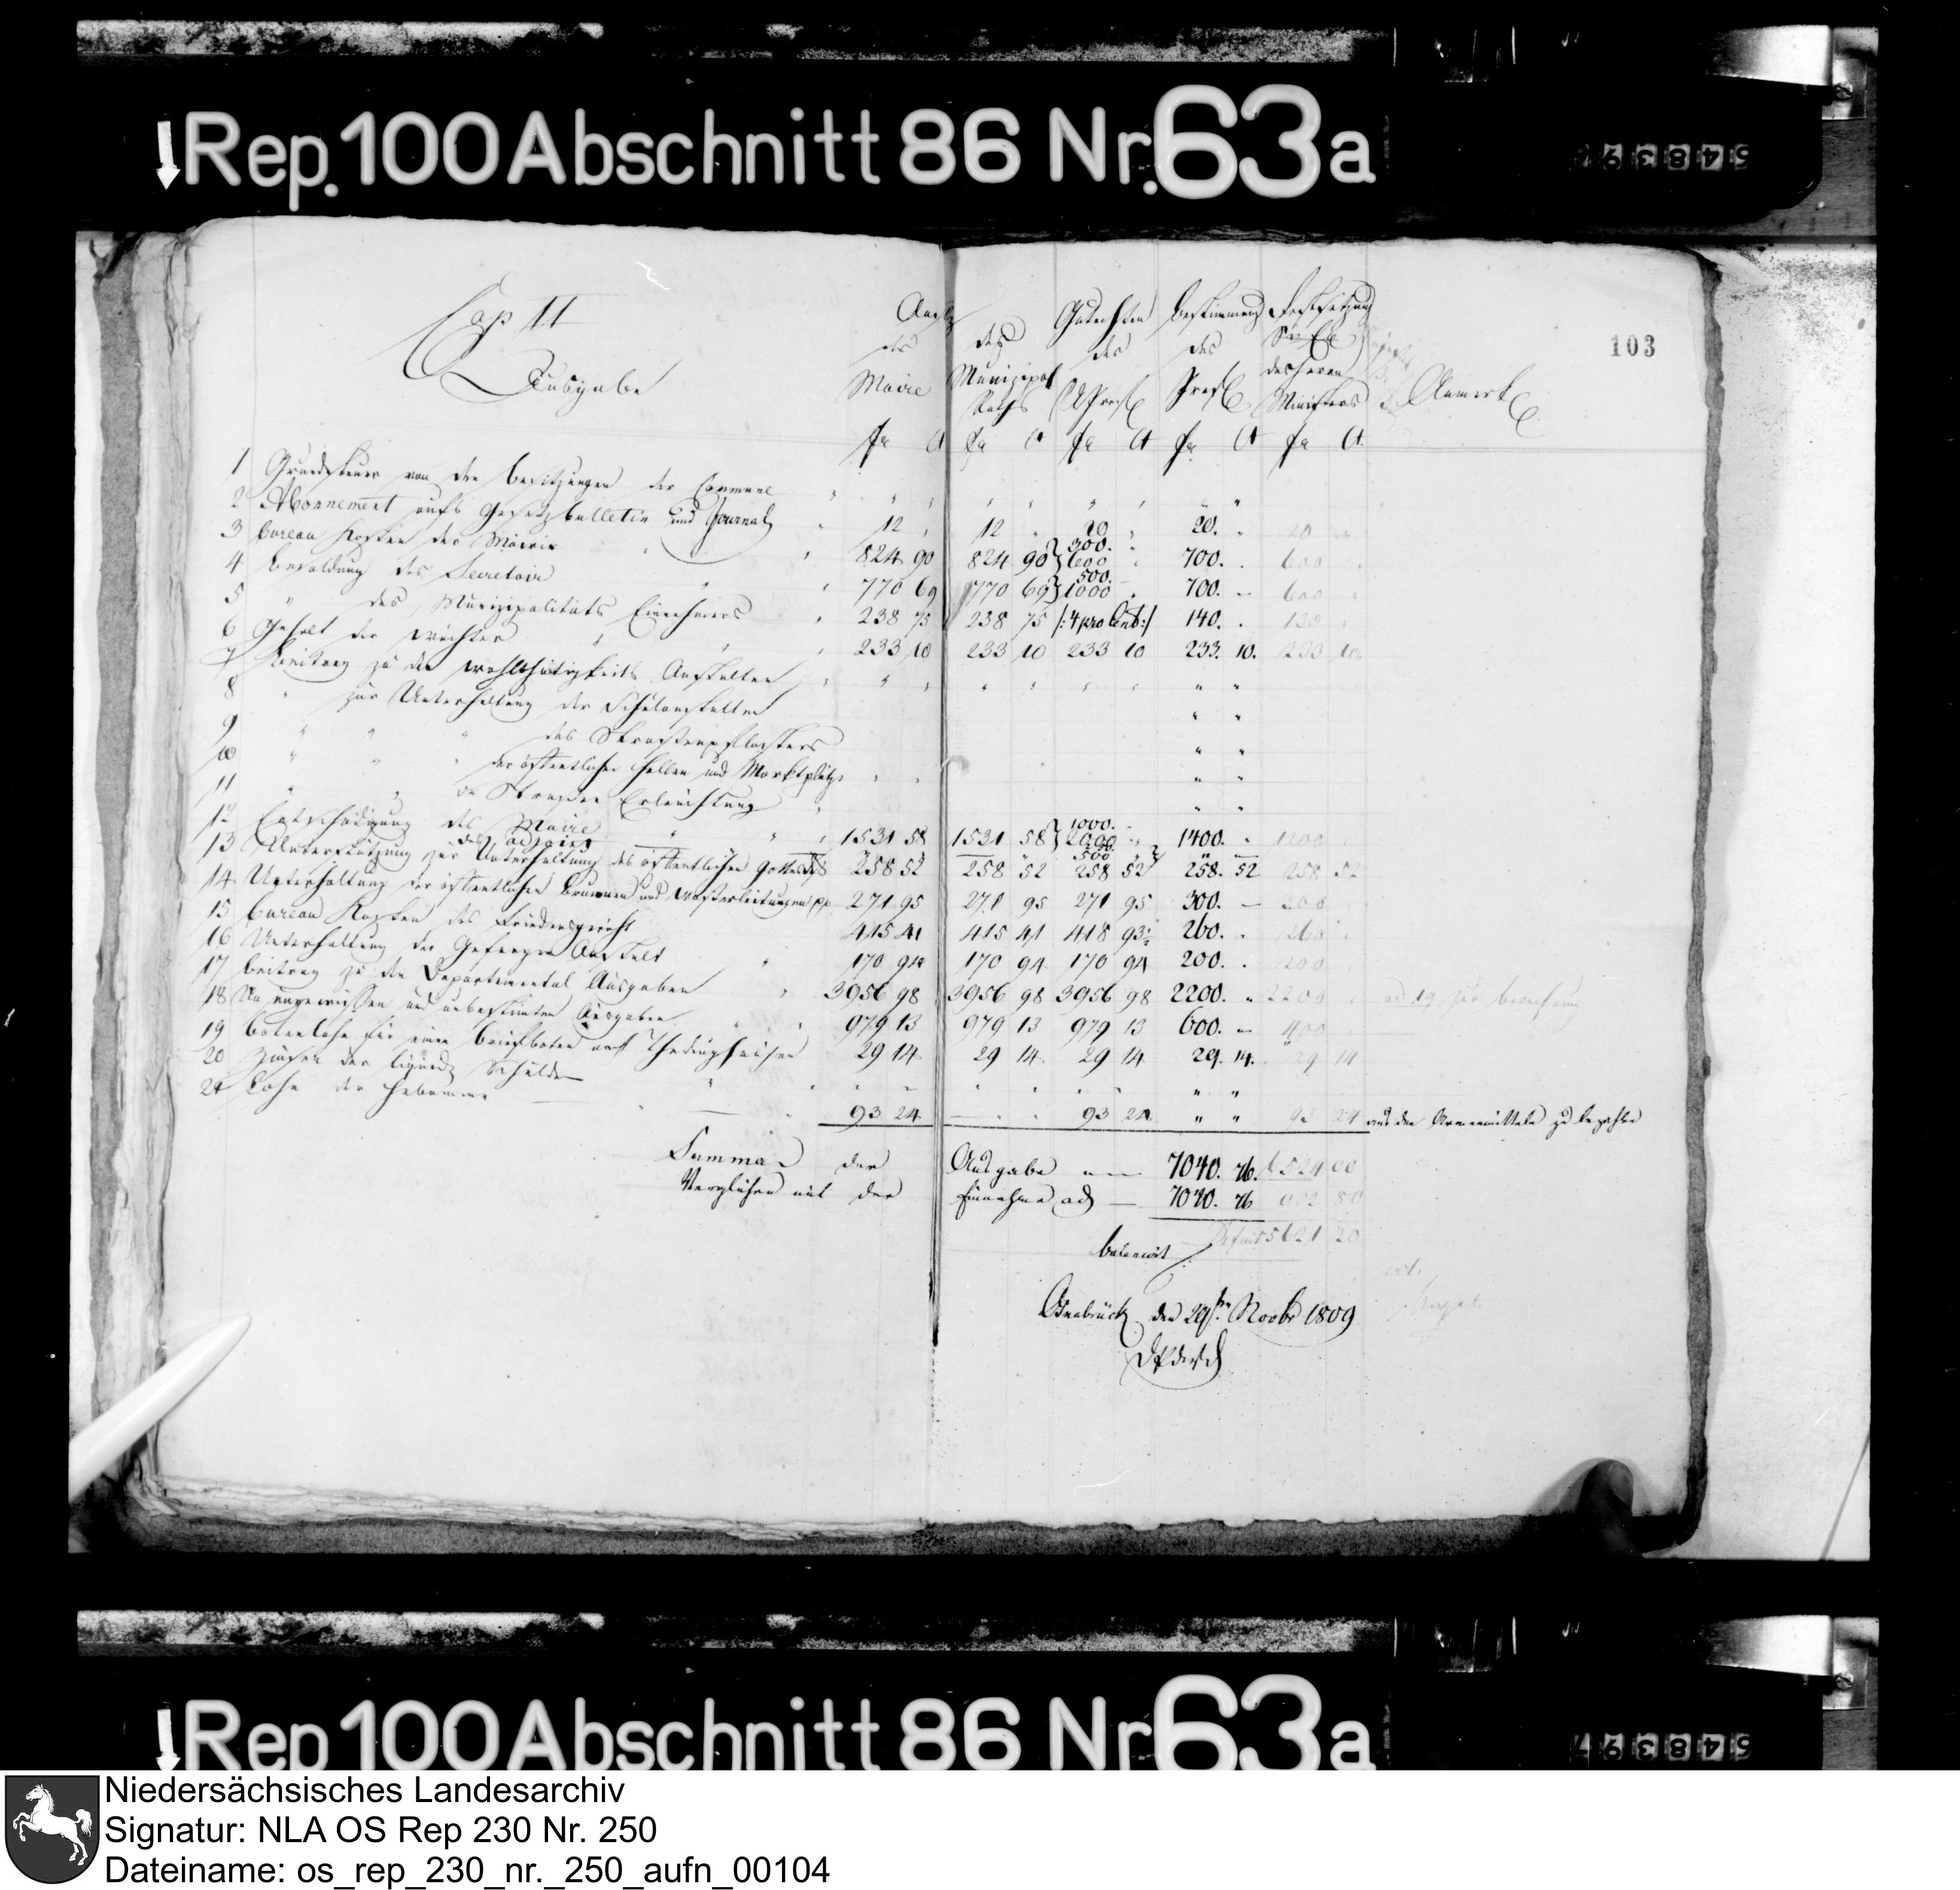 Rep. 100 Abschnitt 86 Nr. 63a
548397
103
Cap II
Ausgabe
des Maire
des Munizipal Raths
Gutachten des UPraef
Bestimmung des Praef
Festsetzung Sr. Ex des Herrn Ministers
Anmerk
fr Ct fr Ct fr Ct fr Ct fr Ct
1 Grundsteuer von den Besitzungen der Commune " " " " " " " "
2 Abonnement aufs Gesetzbulletin und Journal 12 " 12 " 20 " 20. " 20 "
3 Bureau Kosten der Mairie 824 90 824 90 300. 600 700. . 600
4 Besoldung des Secretair 770 69 770 69 500. 1000 700. - 600
5 " des Munizipalitäts Einnehmers 238 75 238 75 /: 4 pro Cent :/ 140. .
6 Gehalt der Wächter 233 10 233 10 233 10 233. 10. 233 10.
7 Beitrag zu den wohlthätigkeits Anstalten " " " " " " " "
8 " zur Unterhaltung der Schulanstalten " "
9 " " " des Strassenpflasters " "
10 " " " der öffentlichen Hallen und Marktplätze " "
11 " " der Strassen Erleuchtung " "
12 Entschädigung des Maire 1531 58 1531 58 1000. 2000 1400. " 1200
des Adjoint 500
13 Unterstützung zur Unterhaltung des öffentlichen Gottesd 258 52 258 52 258 52 258. 52 258 52
14 Unterhaltung der öffentlichen Brunnen und Wasserleitungen pp 271 95 271 95 271 95 300. — 200
15 Bureau Kosten des Friedensgericht 415 41 415 41 418 93½ 260. . 260
16 Unterhaltung der Gefangen Anstalt 170 94 170 94 170 94 200. . 200
17 Beitrag zu den Departemental Ausgaben 3956 98 3956 98 3956 98 2200. " 2200
18 Zu ungewissen und unbestimten Ausgaben 979 13 979 13 979 13 600. — 400
19 Botenlohn für einen Briefboten nach Thedinghausen 29 14 29 14 29 14 29. 14. 29 14
20 Zinsen der liquid Schulden " "
21 Lohn der Hebamme 93 24 — " " 93 24 " " 24 aus den Armenmitteln zu bezahlen
Summa der Ausgabe — 7040. 76. 6524 00
Verglichen mit der Einnahme ad — 7040. 76 902 80
balancirt Deficit 5621 20
Osnabrück den 29ten Novbr 1809
Rep. 100 Abschnitt 86 Nr. 63a
548397
Niedersächsisches Landesarchiv
Signatur: NLA OS Rep 230 Nr. 250
Dateiname: os_rep_230_nr._250_aufn_00104